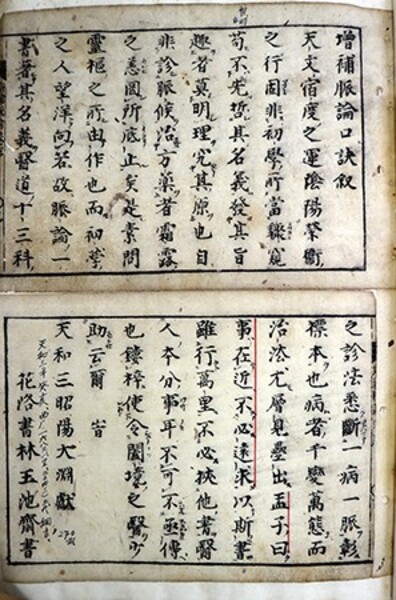 增補脈論口訣叙
天文宿度之運陰陽榮衛
之行固非初學所當驟窺
苟不先哲其名義發其旨
趣者莫明理究其原也自
非診脈候治方藥者霜露
之悉罔所底止矣是素問
靈樞之所由作也而初學
之人望洋向若故脈論一
書著其名義醫道十三科
之診法悉斷一病一脈彰
標本也病者千變萬態而
治法尤層見疊出孟子曰
事在近不必遠求以斯書
雖行萬里不必挾他書醫
人本分事耳不可不亟傳
也鏤梓使令闔境之醫少
助云爾 旹
天和三昭陽大淵獻
花洛書林玉池齋書